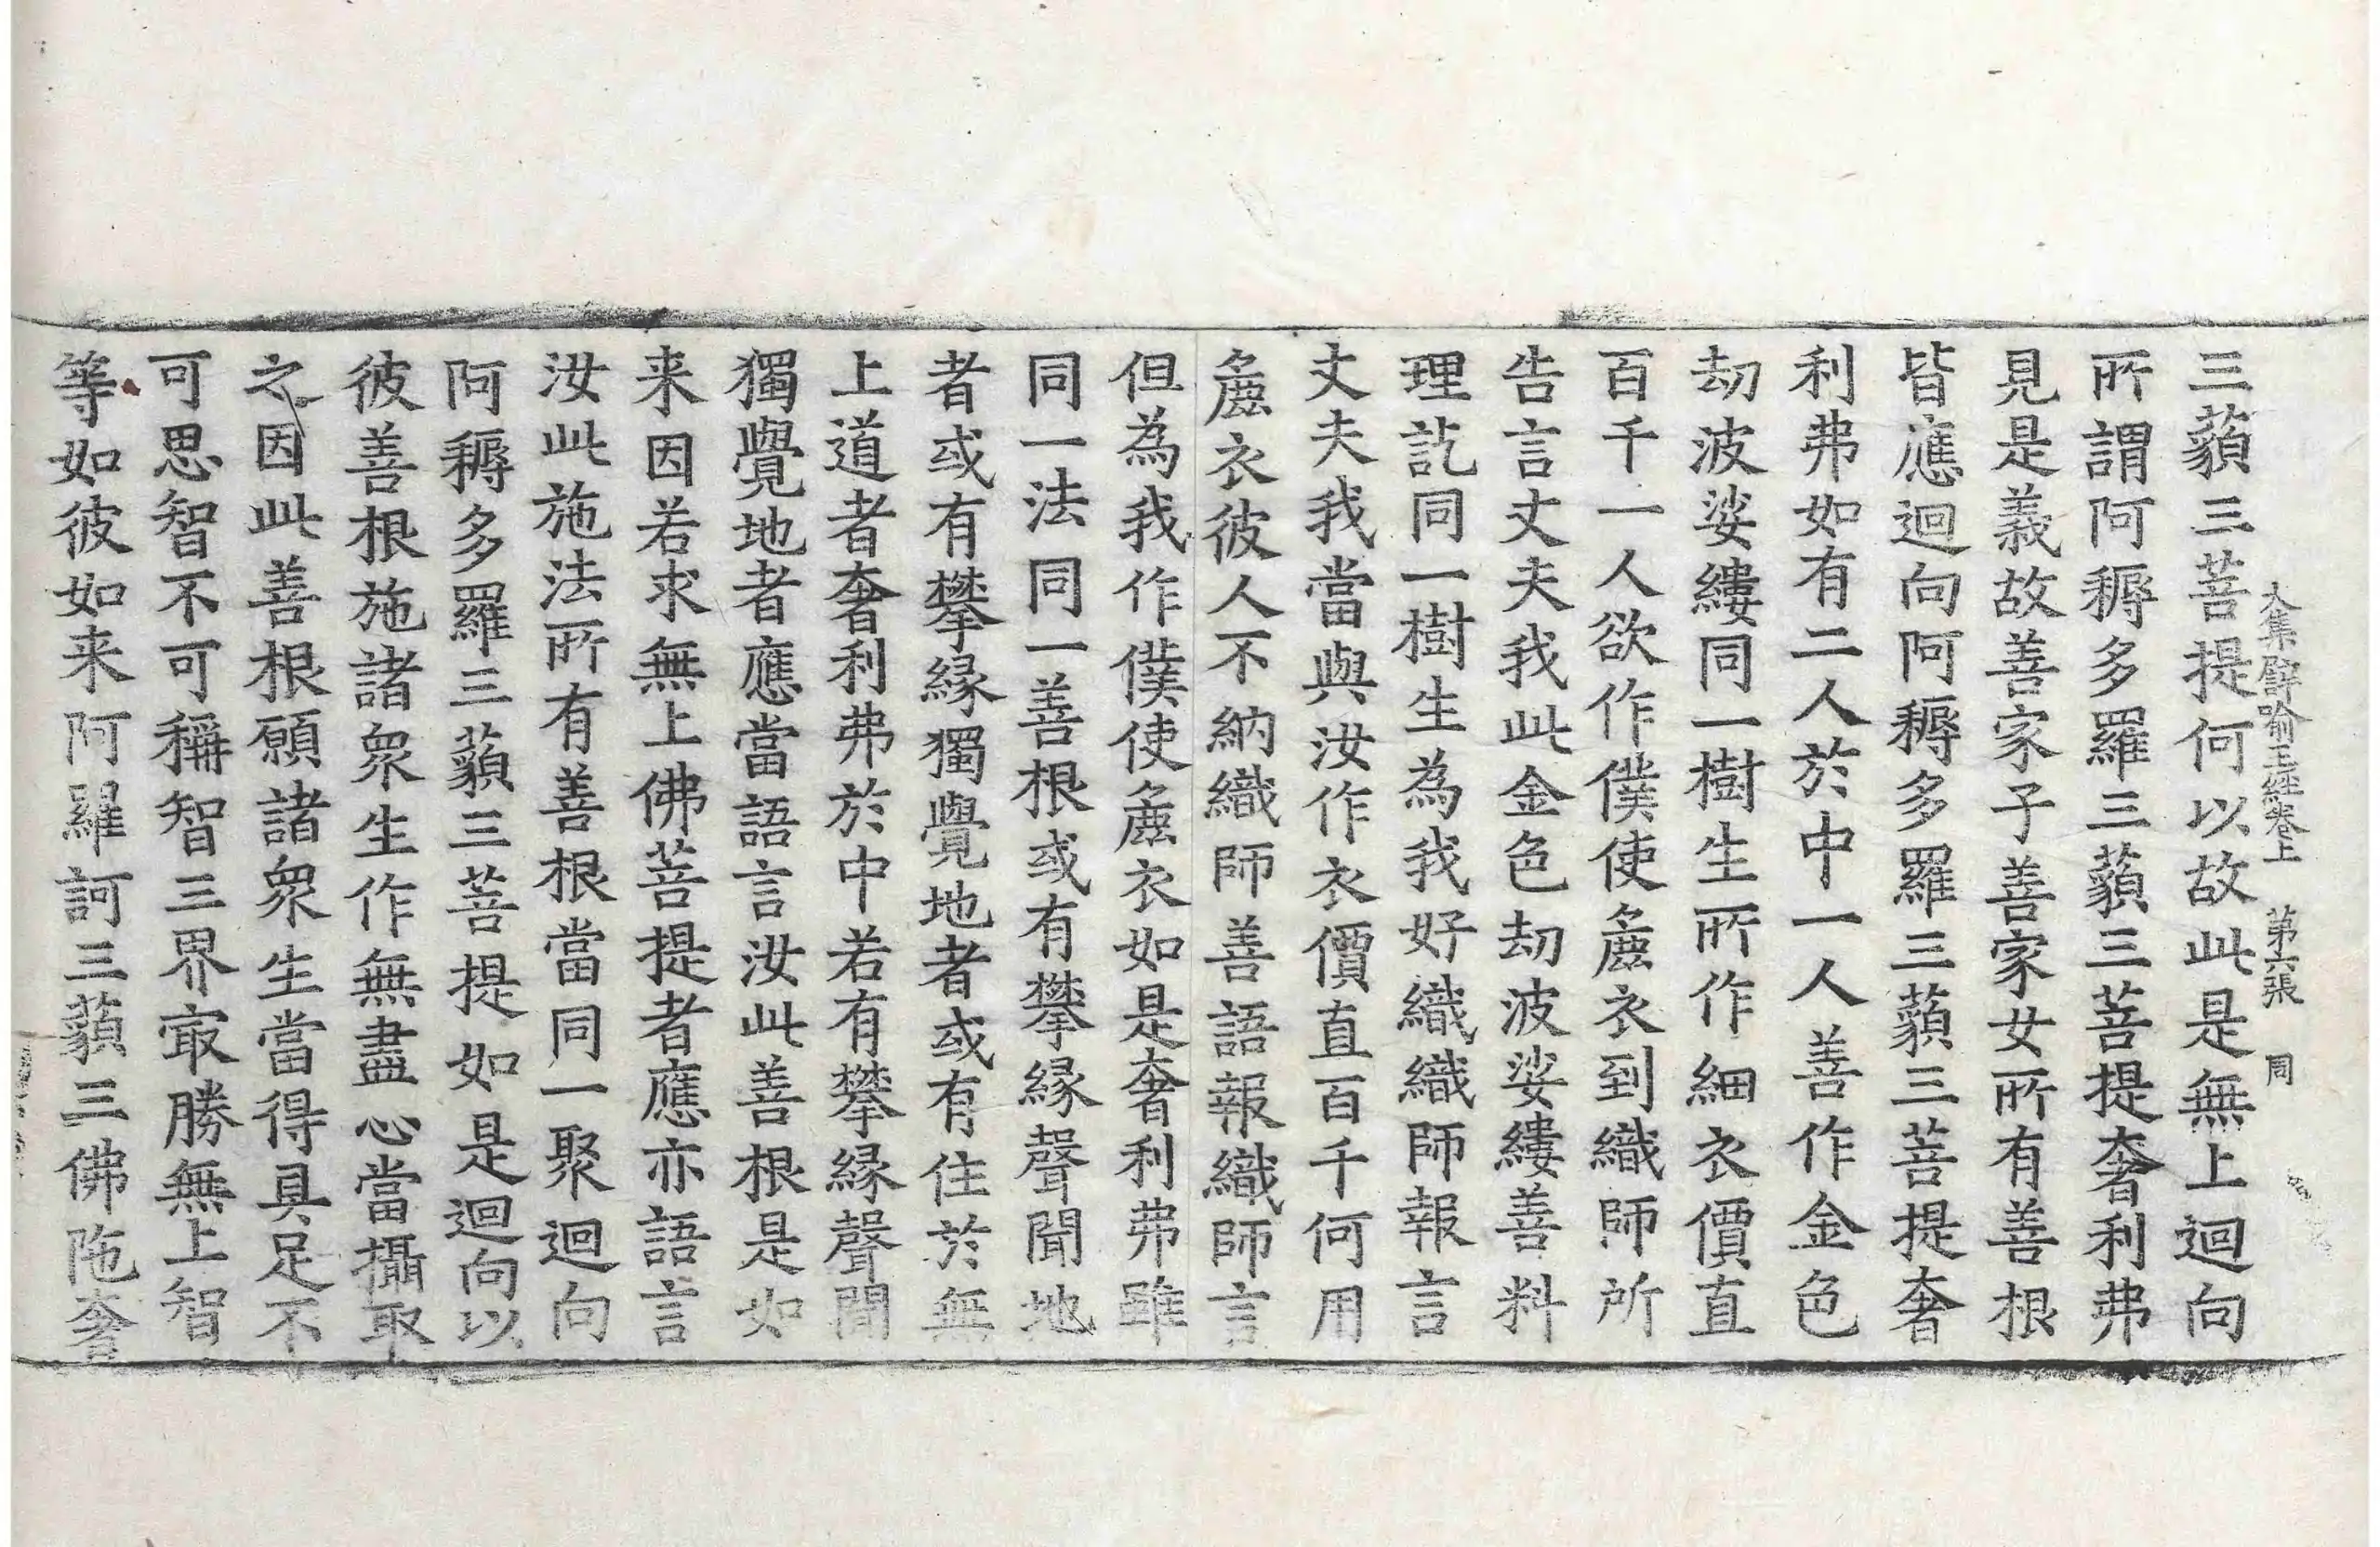 大集譬喻王經卷上　第六張　同
三藐三菩提何以故此是無上迴向
所謂阿耨多羅三藐三菩提奢利弗
見是義故善家子善家女所有善根
皆應迴向阿耨多羅三藐三菩提奢
利弗如有二人於中一人善作金色
劫波娑縷同一樹生所作細衣價直
百千一人欲作僕使麁衣到織師所
告言丈夫我此金色劫波娑縷善料
理訖同一樹生為我好織織師報言
丈夫我當與汝作衣價直百千何用
麁衣彼人不納織師善語報織師言
但為我作僕使麁衣如是奢利弗雖
同一法同一善根或有攀緣聲聞地
者或有攀緣獨覺地者或有住於無
上道者奢利弗於中若有攀緣聲聞
獨覺地者應當語言汝此善根是如
来因若求無上佛菩提者應亦語言
汝此施法所有善根當同一聚迴向
阿耨多羅三藐三菩提如是迴向以
彼善根施諸衆生作無盡心當攝取
之因此善根願諸衆生當得具足不
可思智不可稱智三界㝡勝無上智
等如彼如来阿羅訶三藐三佛陁奢